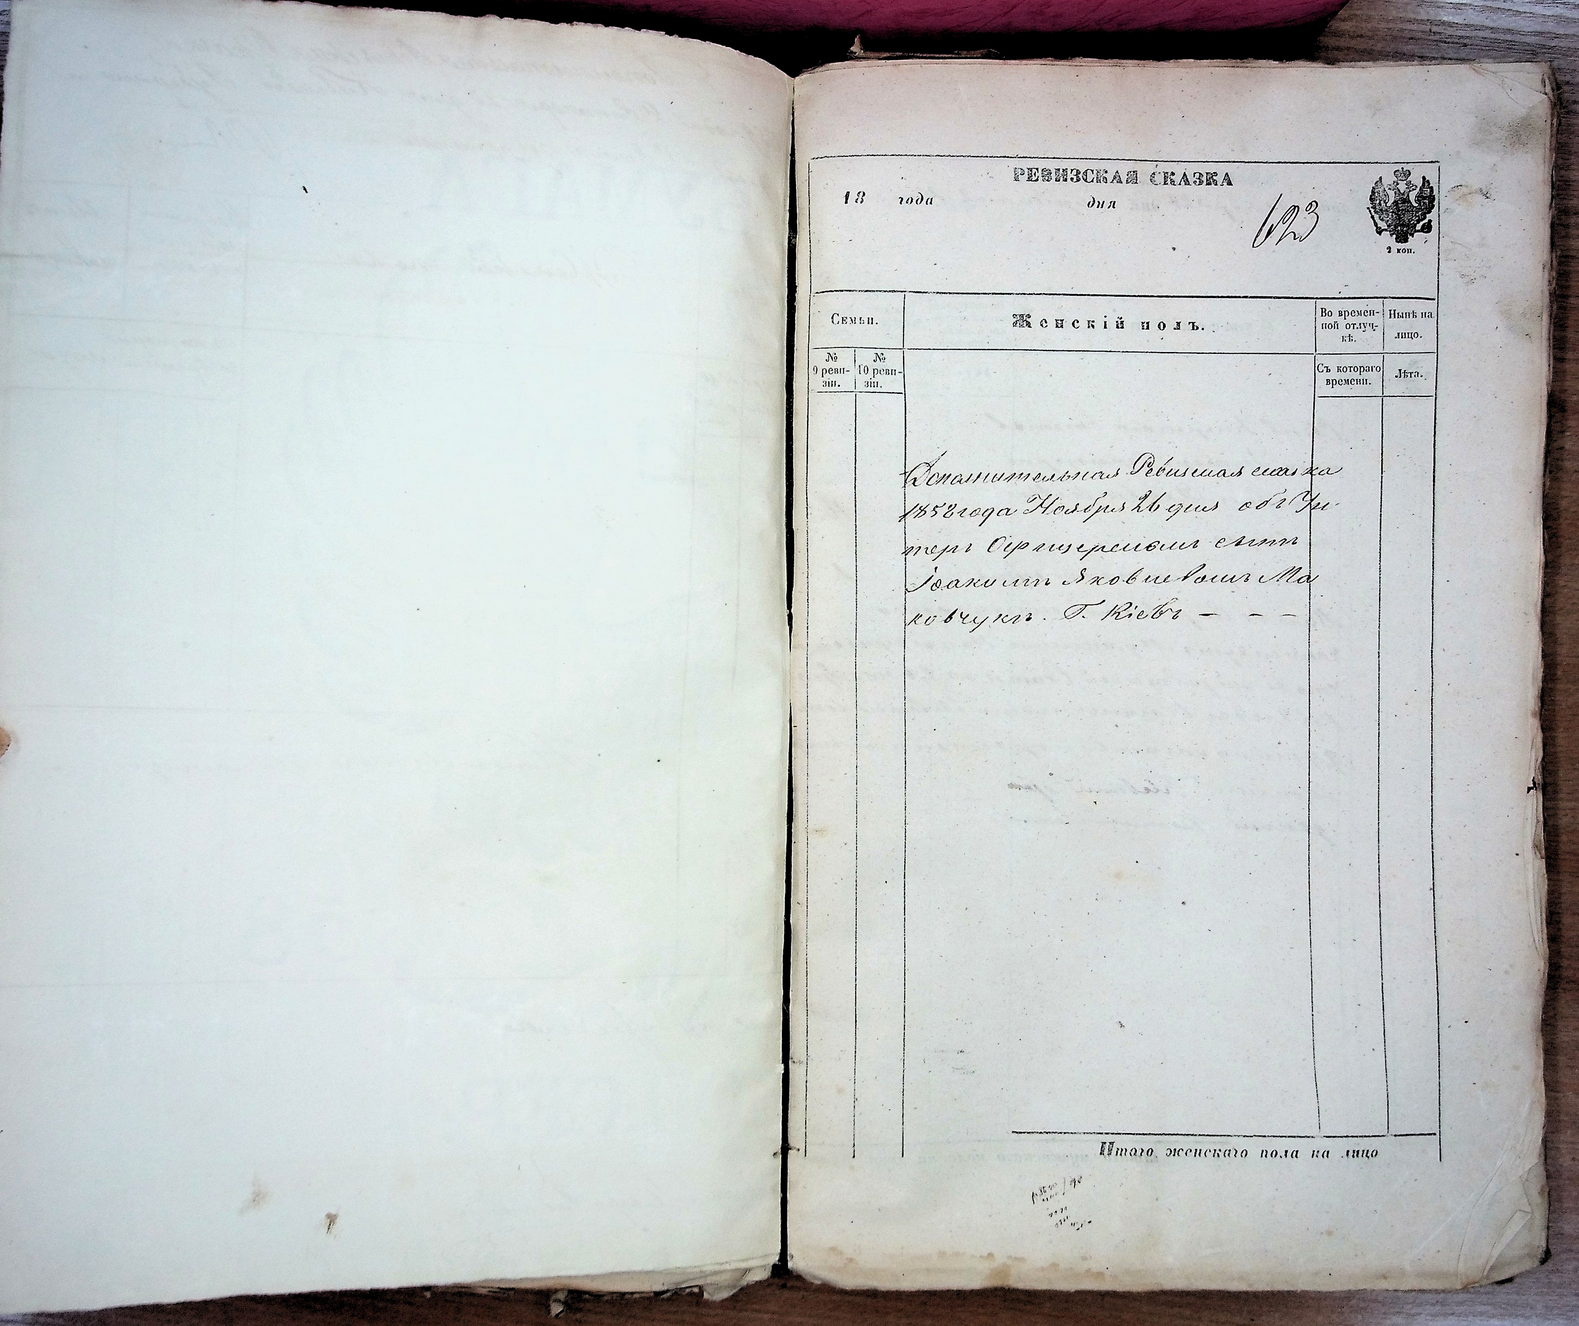 РЕВИЗСКАЯ СКАЗКА
18 года дня
623
2 коп.
Семьи.
Женскій полъ.
Во времен-
ной отлуч-
кѣ.
Нынѣ на
лицо.
№
9 реви-
зіи.
№
10 реви-
зіи.
Съ котораго
времени.
Лѣта.
Дополнительная Ревизская сказка
1858 года Ноября 26 дня объ Ун-
теръ Офицерскомъ сынѣ
Іоакимѣ Яковлевомъ Ма
ковчукѣ. Г. Кіевъ - - -
Итого женскаго пола на лицо